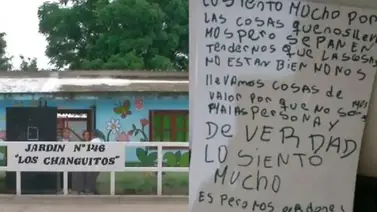 JARDIN N°146
"LOS CHANGUITOS"
LO SIENTO MUCHO POR
LAS COSAS QUE NOS LLEVA
MOS PERO SEPAN EN
TENDERNOS QUE LAS COSAS
NO ESTAN BIEN NO NOS
LLEVAMOS COSAS DE
VALOR POR QUE NO SOMOS
MALAS PERSONA Y
DE VERDAD
LO SIENTO
MUCHO
ESPERO NOS PERDONES